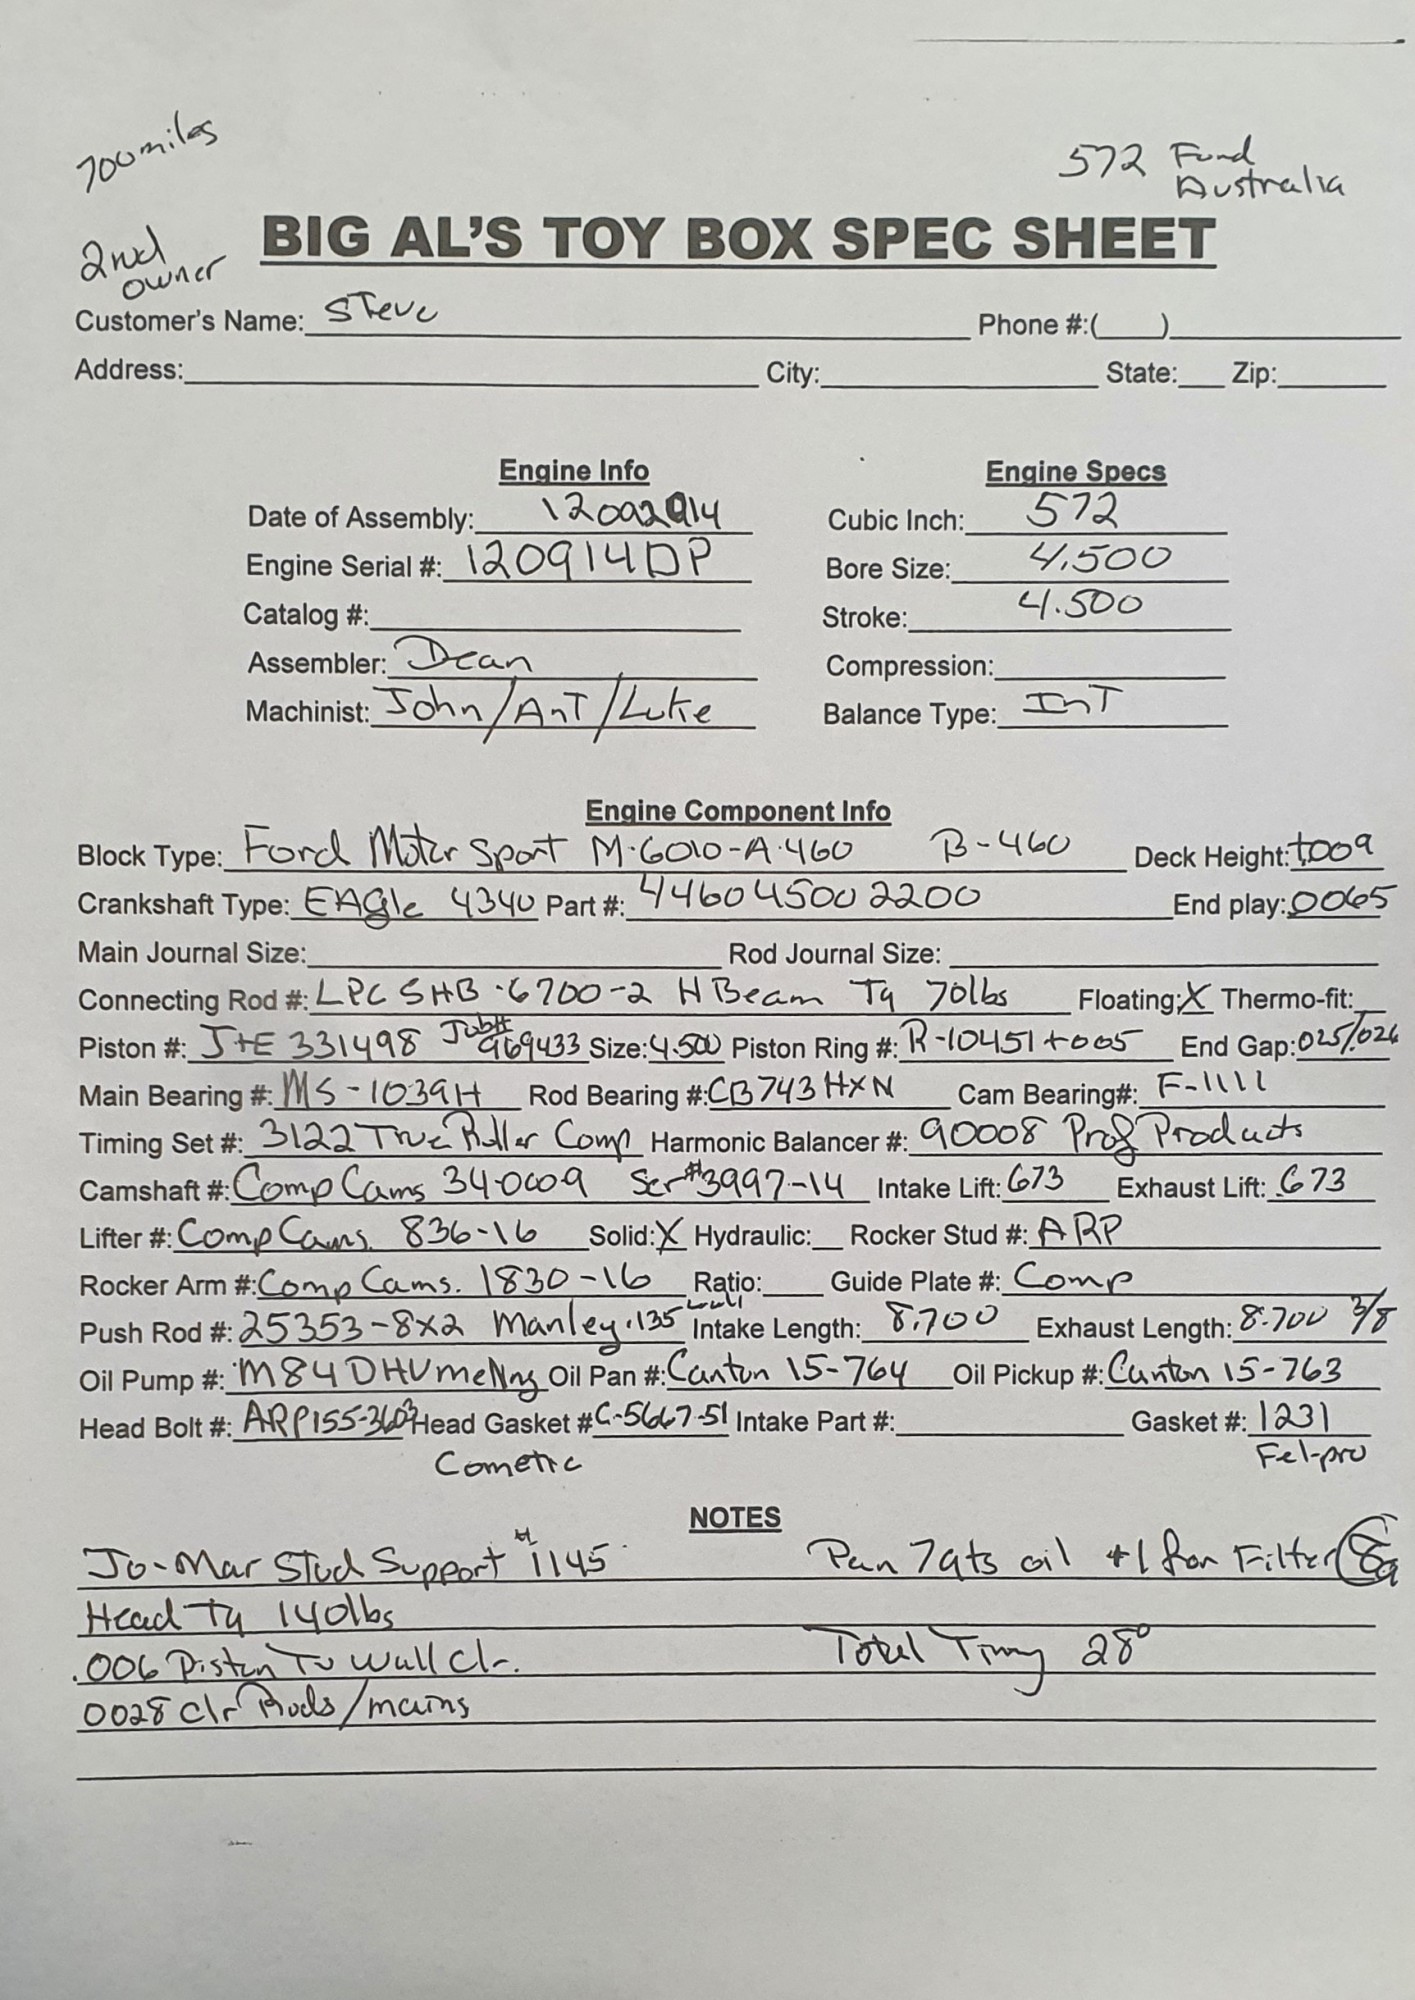 700 miles
572 Ford
Australia
2nd
owner
BIG AL'S TOY BOX SPEC SHEET
Customer's Name: Steve Phone #:( )
Address: City: State: Zip:
Engine Info Engine Specs
Date of Assembly: Cubic Inch: 572
Engine Serial #: 120914DP Bore Size: 4.500
Catalog #: Stroke: 4.500
Assembler: Dean Compression:
Machinist: John/AnT/Luke Balance Type: InT
Engine Component Info
Block Type: Ford Motor Sport M-6010-A-460 B-460 Deck Height: +.009
Crankshaft Type: EAgle 4340 Part #: 446045002200 End play: .0065
Main Journal Size: Rod Journal Size:
Connecting Rod #: LPC SHB-6700-2 H Beam Tq 70lbs Floating: X Thermo-fit:
Piston #: J+E 331498 Job# 969433 Size: 4.500 Piston Ring #: R-10451+005 End Gap: 025/.026
Main Bearing #: MS-1039H Rod Bearing #: CB743HXN Cam Bearing#: F-1111
Timing Set #: 3122 True Roller Comp Harmonic Balancer #: 90008 Prof Products
Camshaft #: Comp Cams 34-000-9 Ser# 3997-14 Intake Lift: 673 Exhaust Lift: .673
Lifter #: Comp Cams. 836-16 Solid: X Hydraulic: Rocker Stud #: ARP
Rocker Arm #: Comp Cams. 1830-16 Ratio: Guide Plate #: Comp
Push Rod #: 25353-8x2 Manley .135 wall Intake Length: 8.700 Exhaust Length: 8.700 3/8
Oil Pump #: M84DHV melling Oil Pan #: Canton 15-764 Oil Pickup #: Canton 15-763
Head Bolt #: ARP155-3603 Head Gasket # C-5667-51 Intake Part #: Gasket #: 1231
Cometic Fel-pro
NOTES
Jo-Mar Stud Support #1145 Pan 7qts oil +1 for Filter 8q
Head Tq 140lbs
.006 Piston To Wall Clr. Total Timing 28°
0028 clr Rods/mains